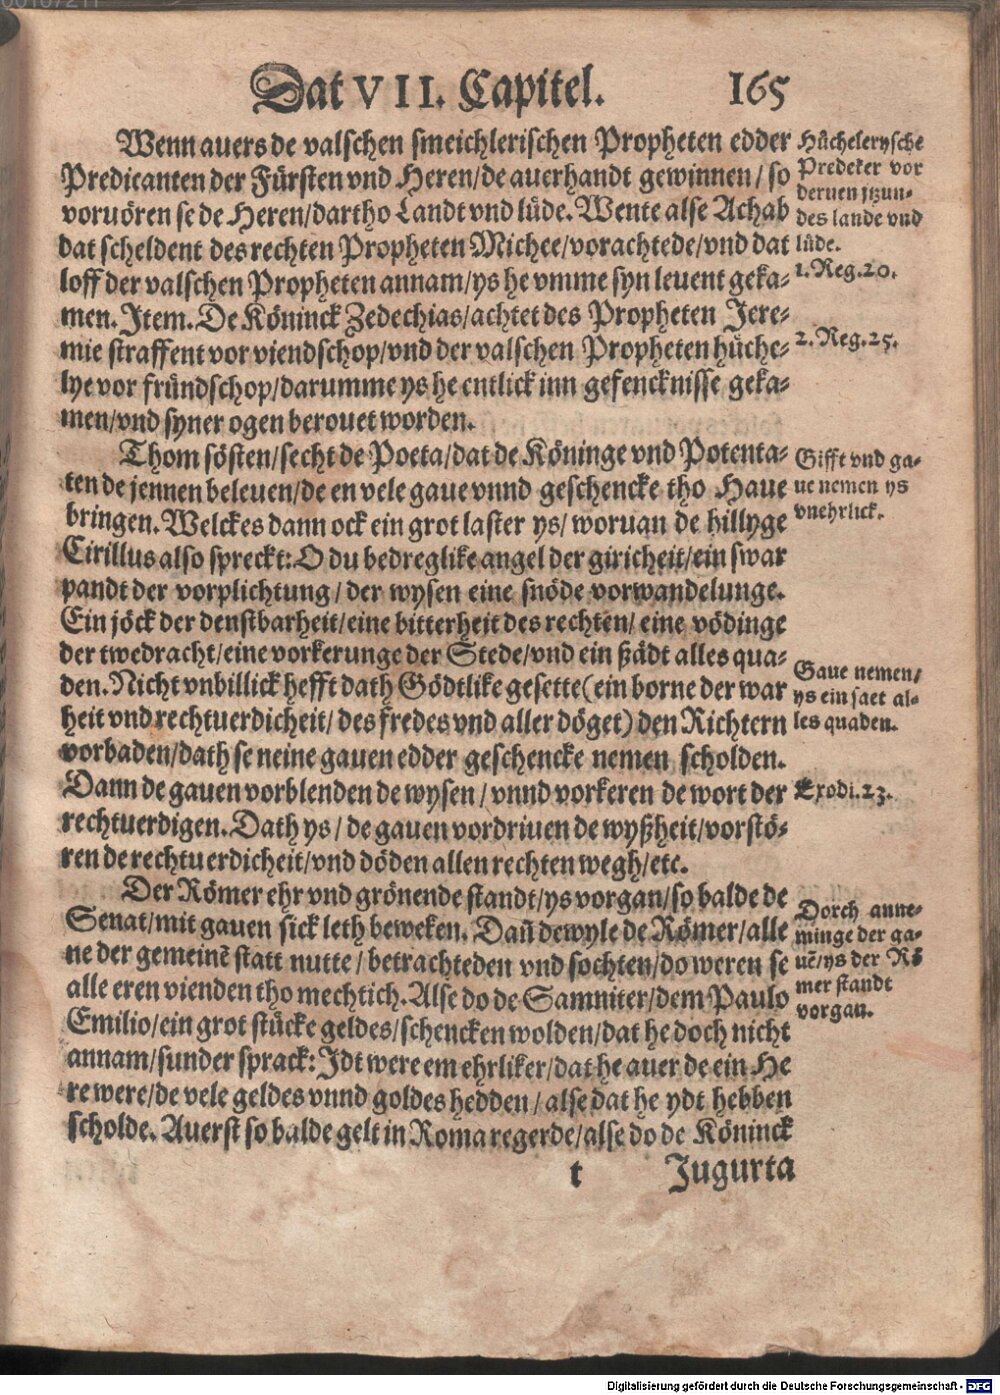 Dat VII. Capitel. 165
Wenn auers de valschen smeichlerischen Propheten edder
Predicanten der Fürsten vnd Heren/de auerhandt gewinnen/so
voruören se de Heren/dartho Landt vnd lüde. Wente alse Achab
dat scheldent des rechten Propheten Michee/vorachtede/vnd dat
loff der valschen Propheten annam/ys he vmme syn leuent geka-
men. Item. De Köninck Zedechias/achtet des Propheten Jere-
mie straffent vor viendschop/vnd der valschen Propheten hüche-
lye vor fründschop/darumme ys he entlick inn gefencknisse geka-
men/vnd syner ogen berouet worden.
Hüchelerysche
Predeker vor
deruen
des lande vnd
lüde.
1. Reg. 20.
2. Reg. 25.
Thom sösten/secht de Poeta/dat de Köninge vnd Potenta-
ten de jennen beleuen/de en vele gaue vnnd geschencke tho Haue
bringen. Welckes dann ock ein grot laster ys/ woruan de hillyge
Cirillus also spreckt: O du bedreglike angel der giricheit/ein swar
pandt der vorplichtung/ der wysen eine snöde vorwandelunge.
Ein jöck der denstbarheit/eine bitterheit des rechten/ eine vödinge
der twedracht/eine vorkerunge der Stede/vnd ein ßädt alles qua-
den. Nicht vnbillick hefft dath Gödtlike gesette(ein borne der war
heit vnd rechtuerdicheit/ des fredes vnd aller döget) den Richtern
vorbaden/dath se neine gauen edder geschencke nemen scholden.
Dann de gauen vorblenden de wysen/ vnnd vorkeren de wort der
rechtuerdigen. Dath ys/ de gauen vordriuen de wyßheit/vorstö-
ren de rechtuerdicheit/vnd döden allen rechten wegh/etc.
Gifft vnd ga-
ue nemen ys
vnehrlick.
Gaue nemen/
ys ein saet al-
les quaden.
Exodi. 23.
Der Römer ehr vnd grönende standt/ys vorgan/so balde de
Senat/mit gauen sick leth beweken. Dañ dewyle de Römer/alle
ne der gemeinẽ statt nutte/ betrachteden vnd sochten/do weren se
alle eren vienden tho mechtich. Alse do de Samniter/dem Paulo
Emilio/ein grot stücke geldes/schencken wolden/dat he doch nicht
annam/sunder sprack: Idt were em ehrliker/dat he auer de ein He
re were/de vele geldes vnnd goldes hedden/ alse dat he ydt hebben
scholde. Auerst so balde gelt in Roma regerde/alse do de Köninck
Dorch anne-
minge der ga-
uẽ/ys der Rö
mer standt
vorgan.
t Jugurta
Digitalisierung gefördert durch die Deutsche Forschungsgemeinschaft - DFG